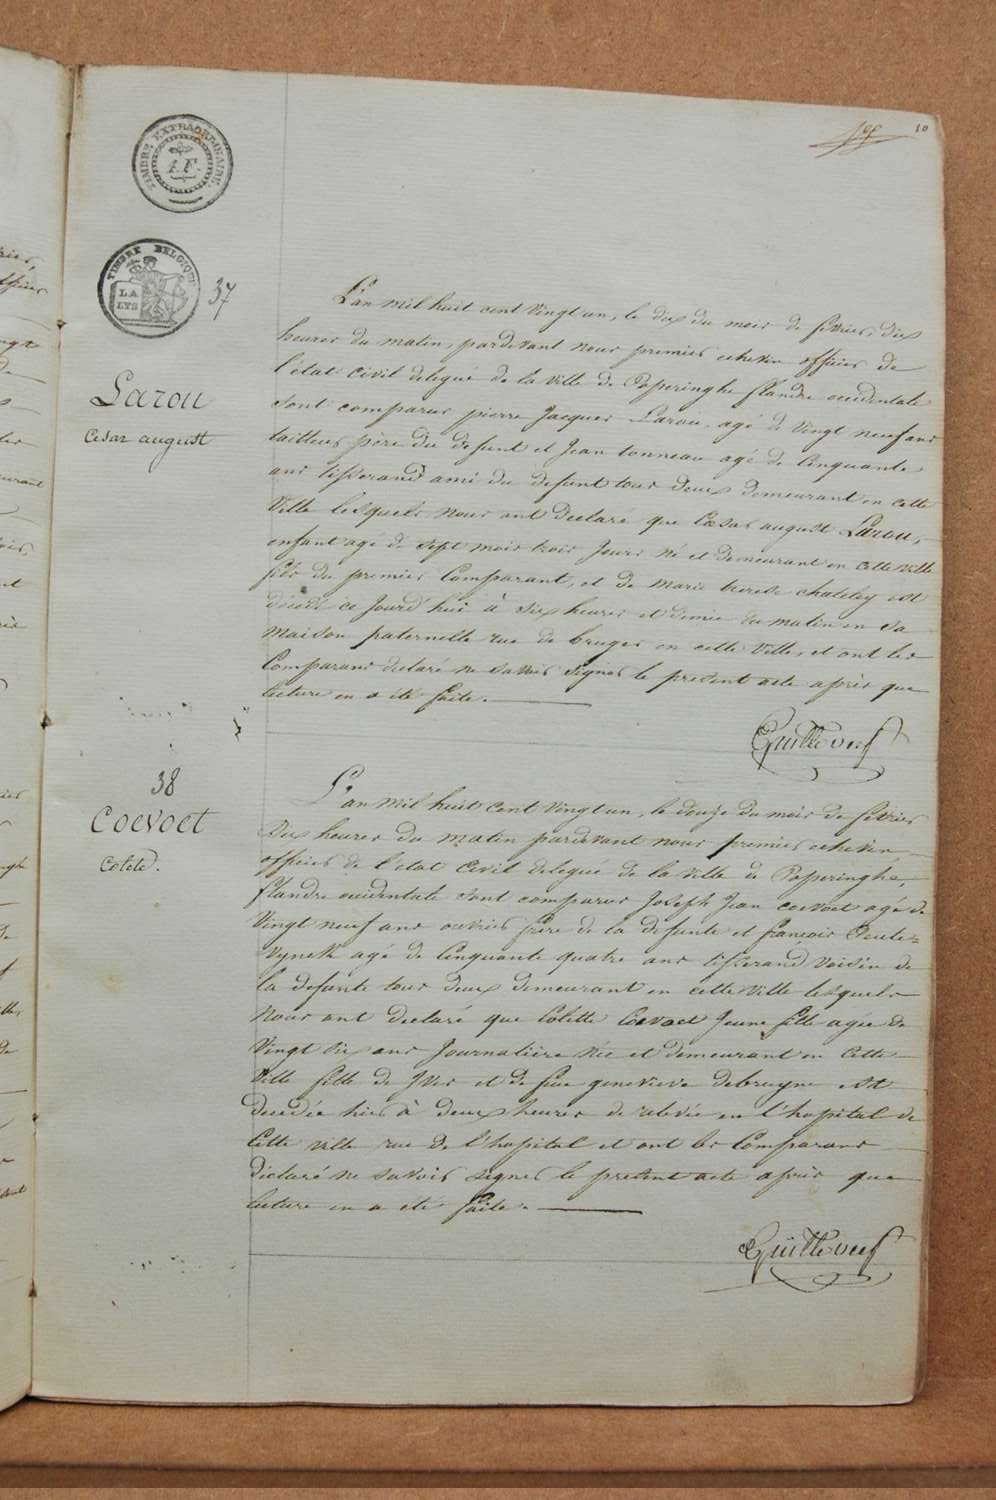 10
TIMBRE EXTRAORDINAIRE
A.F.
TIMBRE BELGIQUE
LA
LYS
37
Larou
Cesar august
L'an mil huit cent vingt un, le dix du mois de fevrier, dix
heures du matin, pardevant nous premier echevin officier de
l'état civil delegué de la ville de Poperinghe flandre occidentale
sont comparus pierre Jacques Larou, agé de vingt neuf ans
tailleur père du defunt et Jean tonneau agé de Cinquante
ans tisserand ami du defunt tous deux demeurant en cette
Ville lesquels nous ont declaré que Cesar august Larou,
enfant agé de sept mois trois Jours né et demeurant en cette ville
fils du premier Comparant, et de marie therese chateley est
décédé ce Jourd'hui à six heures et demie du matin en sa
maison paternelle rue de bruges en cette Ville, et ont les
Comparans declaré ne savoir signer le present acte après que
lecture en a été faite.
Guillevoef
38
Coevoet
Colete.
L'an mil huit cent vingt un, le douze du mois de fevrier
dix heures du matin pardevant nous premier echevin
officier de l'état civil delegué de la ville de Poperinghe,
flandre occidentale sont comparus Joseph Jean coevoet agé de
Vingt neuf ans ouvrier frère de la defunte et françois Deule-
vynck agé de Cinquante quatre ans tisserand voisin de
la defunte tous deux demeurant en cette Ville lesquels
Nous ont declaré que Colette Coevoet Jeune fille agée de
Vingt six ans Journalière née et demeurant en cette
Ville fille de Yves et de feue genevieve debruyne est
decedée hier à deux heures de relevée en l'hopital de
Cette ville rue de l'hopital et ont les Comparans
declaré ne savoir signer le present acte après que
lecture en a été faite.
Guillevoef